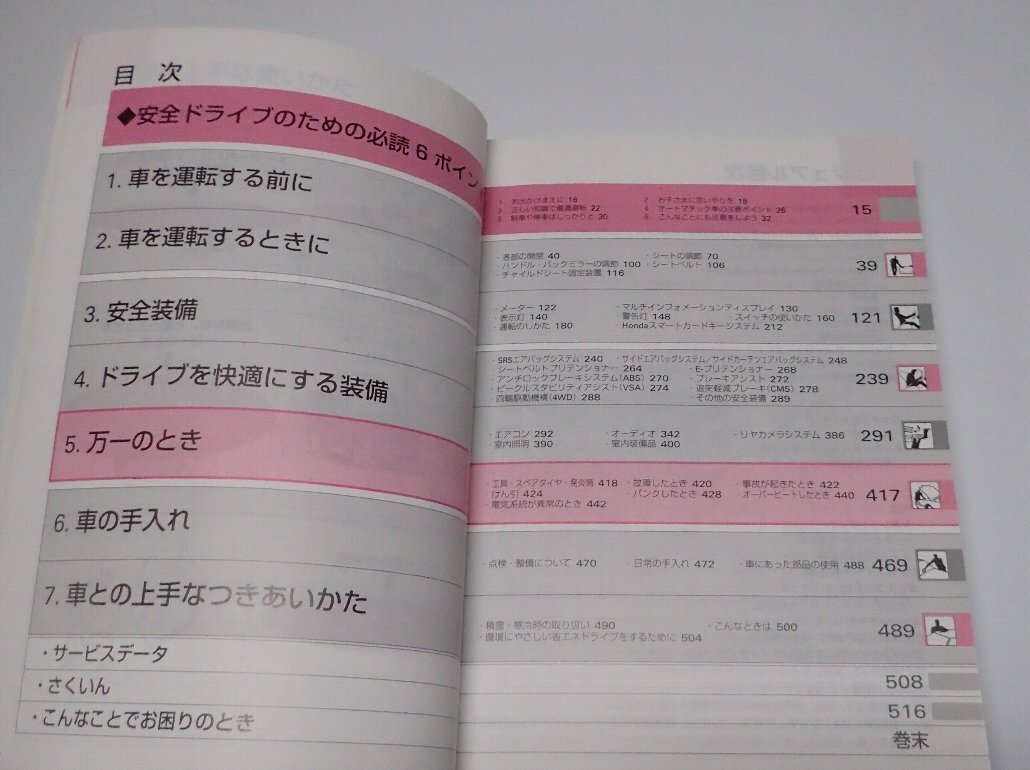 目 次
◆安全ドライブのための必読 6 ポイン
1. 車を運転する前に
2. 車を運転するときに
3. 安全装備
4. ドライブを快適にする装備
5. 万一のとき
6. 車の手入れ
7. 車との上手なつきあいかた
・サービスデータ
・さくいん
・こんなことでお困りのとき
1. お出かけまえに 16 2. お子さまに思いやりを 18
3. 正しい知識で最適運転 22 4. オートマチック車の注意ポイント 26
5. 駐車や停車はしっかりと 30 6. こんなことにも注意をしよう 32
15
・各部の開閉 40 ・シートの調節 70
・ハンドル・バックミラーの調節 100 ・シートベルト 106
・チャイルドシート固定装置 116
39
・メーター 122 ・マルチインフォメーションディスプレイ 130
・表示灯 140 ・警告灯 148 ・スイッチの使いかた 160
・運転のしかた 180 Hondaスマートカードキーシステム 212
121
・SRSエアバッグシステム 240 ・サイドエアバッグシステム/サイドカーテンエアバッグシステム 248
・シートベルトプリテンショナー 264 ・E-プリテンショナー 268
・アンチロックブレーキシステム(ABS) 270 ・ブレーキアシスト 272
・ビークルスタビリティアシスト(VSA) 274 ・追突軽減ブレーキ(CMS) 278
・四輪駆動機構(4WD) 288 ・その他の安全装備 289
239
・エアコン 292 ・オーディオ 342 ・リヤカメラシステム 386
・室内照明 390 ・室内装備品 400
291
・工具・スペアタイヤ・発炎筒 418 ・故障したとき 420 ・事故が起きたとき 422
・けん引 424 ・パンクしたとき 428 ・オーバーヒートしたとき 440
・電気系統が異常のとき 442
417
・点検・整備について 470 ・日常の手入れ 472 ・車にあった部品の使用 488
469
・積雪・寒冷時の取り扱い 490 ・こんなときは 500
・環境にやさしい省エネドライブをするために 504
489
508
516
巻末